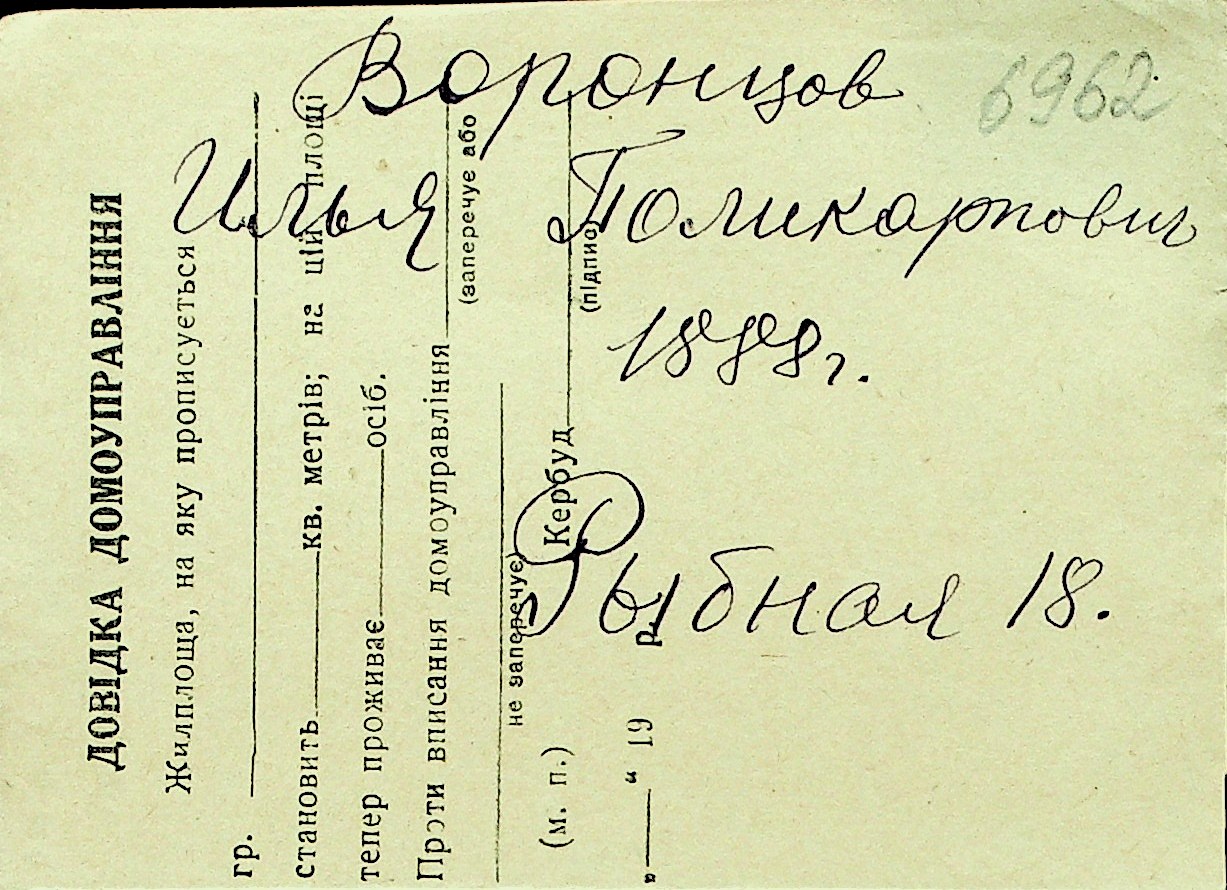 Воронцов 6962
Илья Поликарпович
1888г.
Рыбная 18.
ДОВІДКА ДОМОУПРАВЛІННЯ
Жилплоща, на яку прописується
гр.
становить кв. метрів; на цій площі
тепер проживає осіб.
Проти вписання домоуправління
(заперечує або
не заперечує)
(м. п.) Кербуд
(підпис)
„ “ 19 р.